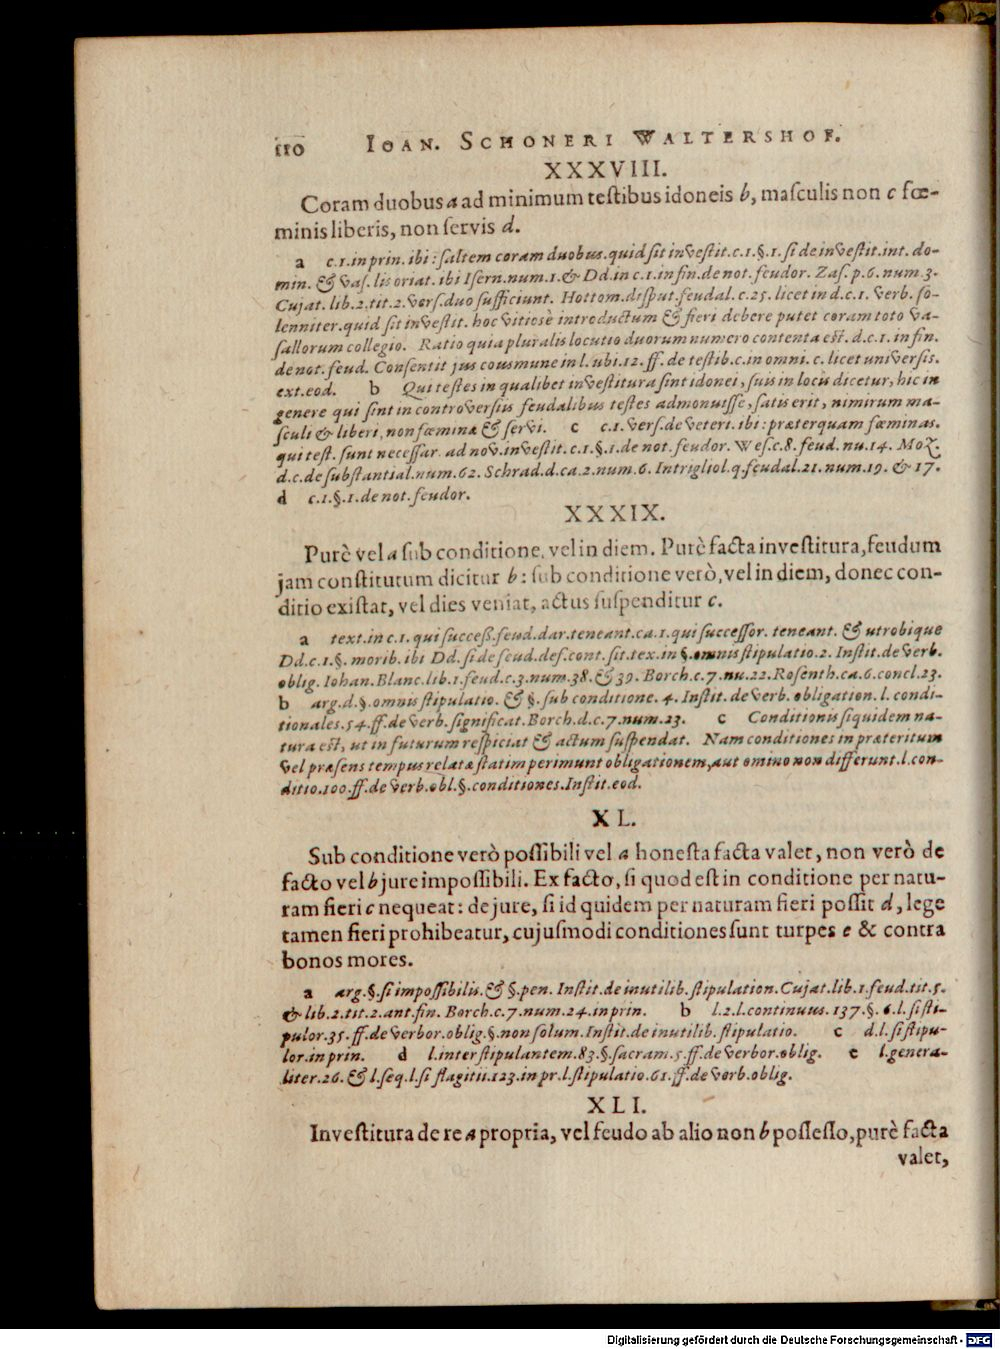 110 IOAN. SCHONERI WALTERSHOF.
XXXVIII.
Coram duobus a ad minimum testibus idoneis b, masculis non c fœ-
minis liberis, non servis d.
a c.1.in prin. ibi: saltem coram duobus. quid sit investit. c.1.§.1. si de investit. int. do-
min. & vas. lis oriat. ibi Isern. num.1. & Dd. in c.1. in fin. de not. feudor. Zas. p.6. num.3.
Cujat. lib.2. tit.2. vers. duo sufficiunt. Hottom. disput. feudal. c.25. licet in d.c.1. verb. so-
lenniter. quid sit investit. hoc vitiosè introductum & fieri debere putet coram toto va-
sallorum collegio. Ratio quia pluralis locutio duorum numero contenta est. d.c.1. in fin.
de not. feud. Consentit jus cousmune in l. ubi.12. ff. de testib. c. in omni. c. licet universis.
ext. eod. b Qui testes in qualibet investitura sint idonei, suis in locis dicetur, hic in
genere qui sint in controversiis feudalibus testes admonuisse, satis erit, nimirum ma-
sculi & liberi, non fœminæ & servi. c c.1. vers. de veteri. ibi: præterquam fœminas.
qui test. sunt necessar. ad nov. investit. c.1.§.1. de not. feudor. Wes. c.8. feud. nu.14. Moz.
d.c. de substantial. num.62. Schrad. d. ca.2. num.6. Intrigliol. q. feudal.21. num.19. & 17.
d c.1.§.1. de not. feudor.
XXXIX.
Purè vel a sub conditione, vel in diem. Purè facta investitura, feudum
jam constitutum dicitur b: sub conditione verò, vel in diem, donec con-
ditio existat, vel dies veniat, actus suspenditur c.
a text. in c.1. qui success. feud. dar. teneant. ca.1. qui successor. teneant. & utrobique
Dd. c.1.§. morib. ibi Dd. si de feud. def. cont. sit. tex. in §. omnis stipulatio.2. Instit. de verb.
oblig. Iohan. Blanc. lib.1. feud. c.3. num.38. & 39. Borch. c.7. nu.22. Rosenth. ca.6. concl.23.
b arg. d.§. omnis stipulatio. & §. sub conditione. 4. Instit. de verb. obligation. l. condi-
tionales. 54. ff. de verb. significat. Borch. d.c.7. num.23. c Conditionis siquidem na-
tura est, ut in futurum respiciat & actum suspendat. Nam conditiones in præteritum
vel præsens tempus relatæ statim perimunt obligationem, aut omino non differunt. l. con-
ditio.100. ff. de verb. obl. §. conditiones. Instit. eod.
XL.
Sub conditione verò possibili vel a honesta facta valet, non verò de
facto vel b jure impossibili. Ex facto, si quod est in conditione per natu-
ram fieri c nequeat: de jure, si id quidem per naturam fieri possit d, lege
tamen fieri prohibeatur, cujusmodi conditiones sunt turpes e & contra
bonos mores.
a arg. §. si impossibilis. & §. pen. Instit. de inutilib. stipulation. Cujat. lib.1. feud. tit.5.
& lib.2. tit.2. ant. fin. Borch. c.7. num.24. in prin. b l.2. l. continuus. 137. §. 6. l. si sti-
pulor.35. ff. de verbor. oblig. §. non solum. Instit. de inutilib. stipulatio. c d.l. si stipu-
lor. in prin. d l. inter stipulantem. 83. §. sacram. 5. ff. de verbor. oblig. e l. genera-
liter. 26. & l. seq. l. si flagitii. 123. in pr. l. stipulatio. 61. ff. de verb. oblig.
XLI.
Investitura de re a propria, vel feudo ab alio non b possesso, purè facta
valet,
Digitalisierung gefördert durch die Deutsche Forschungsgemeinschaft - DFG